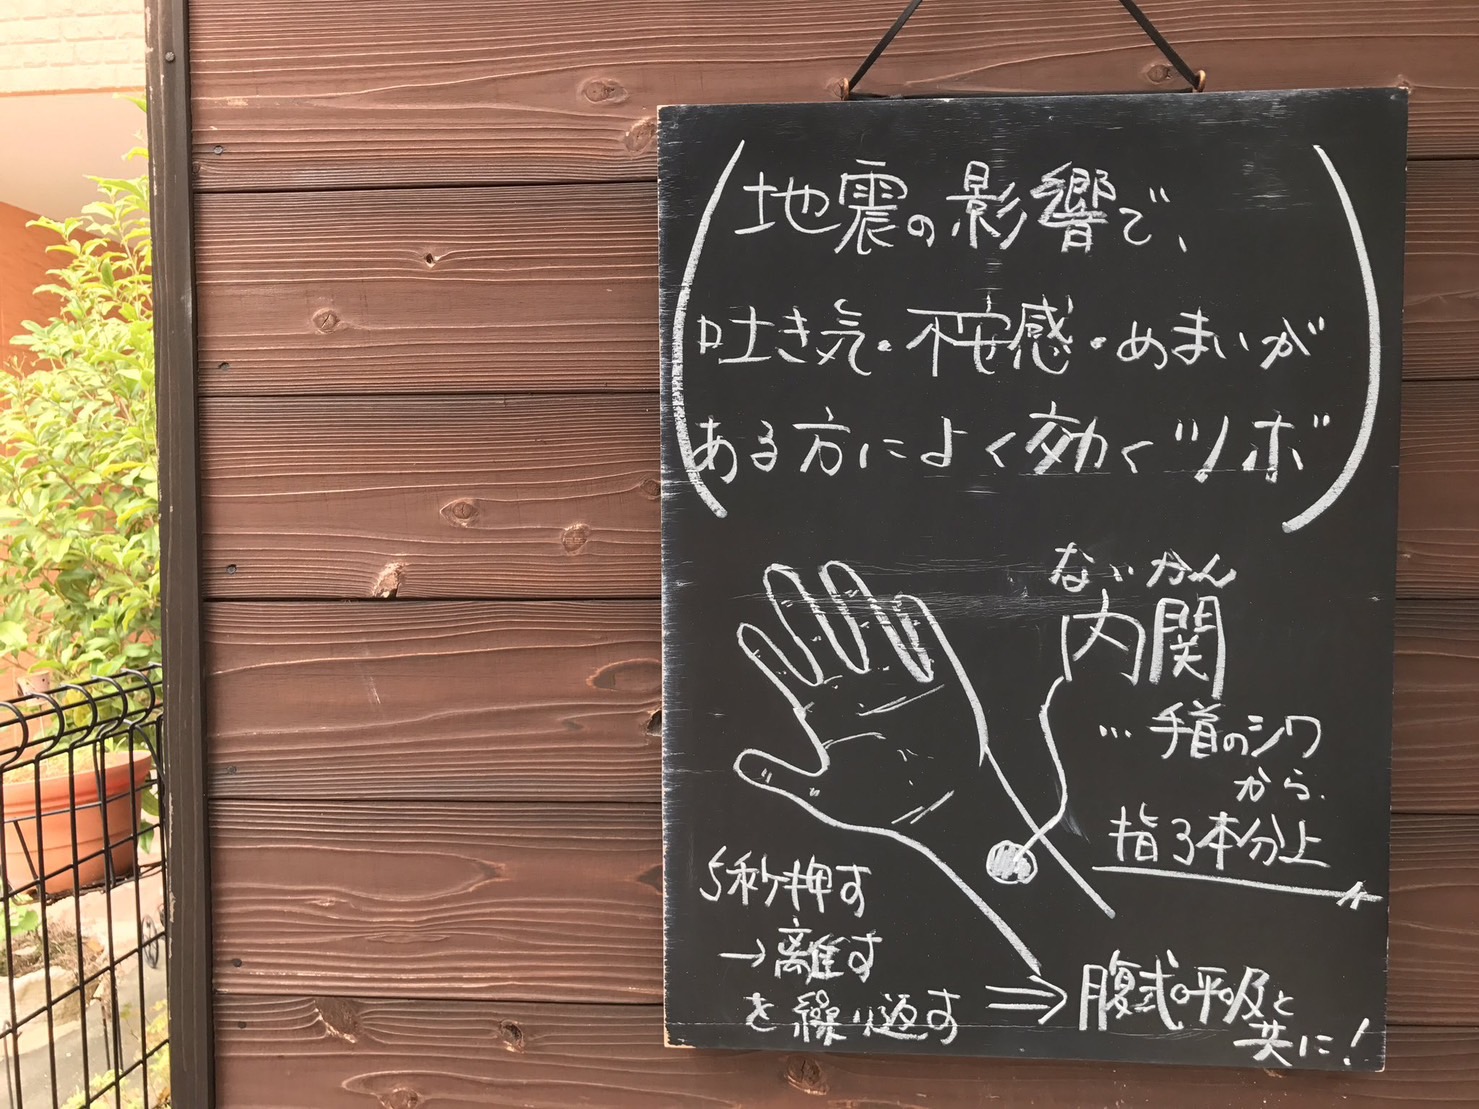 地震の影響で、
吐き気・不安感・めまいが
ある方によく効くツボ
ないかん
内関
…手首のシワ
から
指3本分上
5秒押す
→離す
を繰り返す
⇒腹式呼吸と
共に！